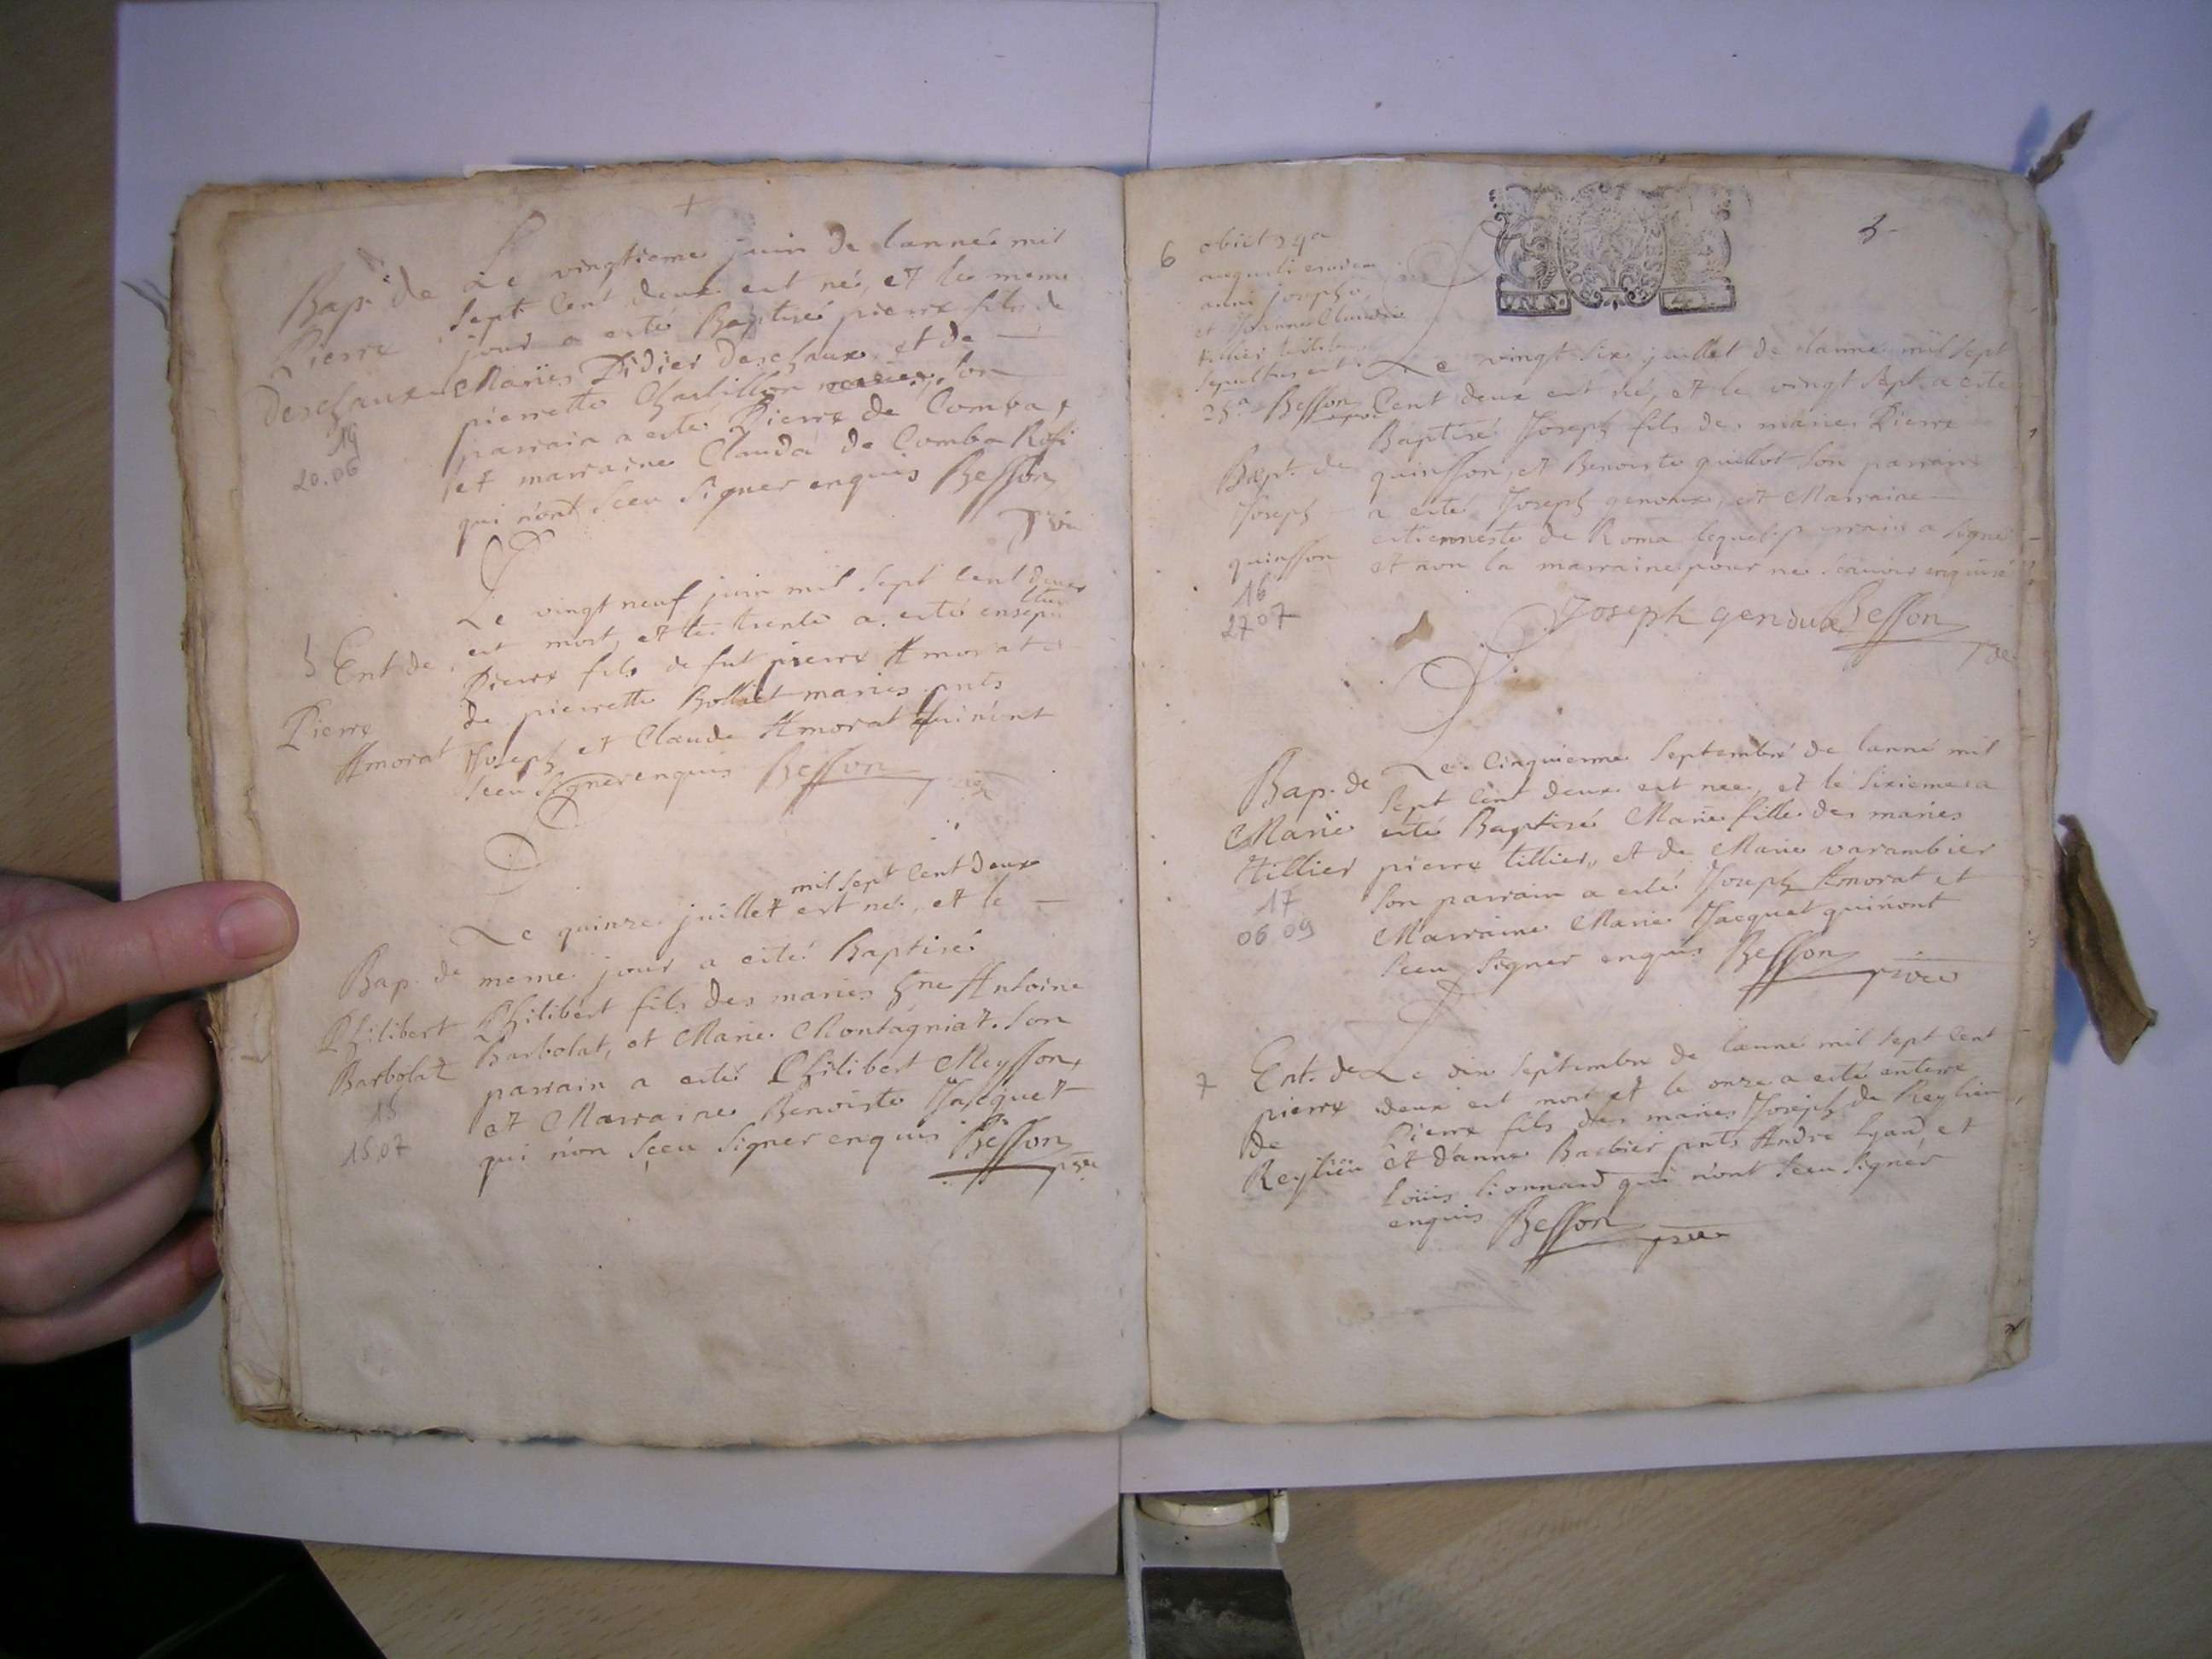 Bap. de
Pierre
deschaux
19
20.06
Le vingtieme juin de lanneé mil
sept Cent deux est né, et le meme
jour a esté Baptisé pierre fils de
Mariés Didier deschaux et de
pierrette Chastillon son
parrain a esté Pierre de Comba
et marraine Clauda de Comba
qui n'ont sceu signer enquis Besson
5 Ent de
Pierre
Amorat
Le vingt neuf juin mil sept Cent deux
est mort, et le trente a esté ensepulturé
Pierre fils de fut pierre Amorat et
de pierrette Bolliet mariés pnts
Joseph et Claude Amorat qui n'ont
sceu signer enquis Besson
Bap. de
Philibert
Barbolat
15
15.07
mil sept Cent deux
Le quinze juillet est né, et le
meme jour a esté Baptisé
Philibert fils des mariés hne Antoine
Barbolat, et Marie Montagniat. son
parrain a esté Philibert Meysson,
et Marraine Benoiste Jacquet
qui n'on sceu signer enquis Besson
6 obiit 24a
augusti eiusdem
anni josepho
et Joanne Claudio
tillier
sepultus est
25a Besson
3-
GEN
Bapt. de
Joseph
quinsson
16
27 07
Le vingt six juillet de lanné mil sept
Cent deux est né, et le vingt sept a esté
Baptisé Joseph fils des mariés Pierre
quinsson, et Benoiste guillot son parrain
a esté Joseph genoux, et Marraine
estienneste de Roma lequel parrain a signé
et non la marraine pour ne scauoir enquise
Joseph genoux Besson
Bap. de
Marie
tillier
17
06 09
Le Cinquieme septembre de lanné mil
sept Cent deux est neé, et le sixieme a
esté Baptisé Marie fille des mariés
pierre tillier, et de Marie varambier
son parrain a esté Joseph Amorat et
Marraine Marie Jacquet qui n'ont
sceu signer enquis Besson
7 Ent. de
pierre
de
Reylieu
Le dix septembre de lanné mil sept Cent
deux est mort et le onze a esté enterré
Pierre fils des mariés Joseph de Reylieu
et d'anne Barbier pnts André Lyard, et
Loüis Lionnard qui n'ont sceu signer
enquis Besson